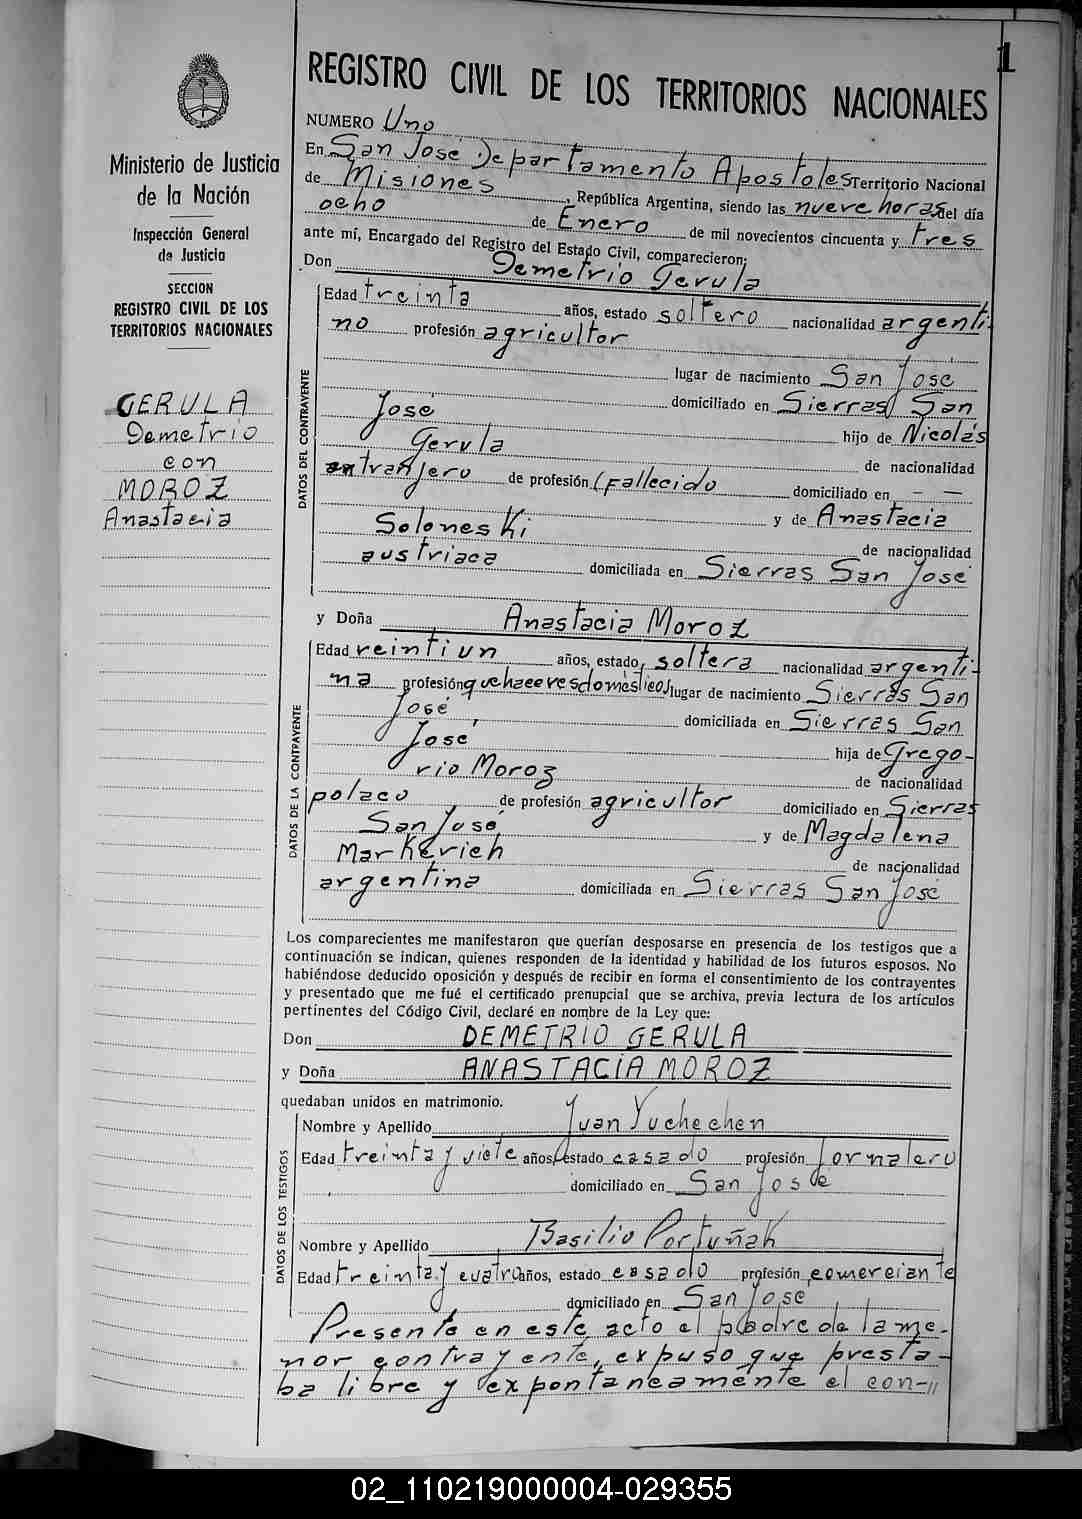 1
REGISTRO CIVIL DE LOS TERRITORIOS NACIONALES
Ministerio de Justicia
de la Nación
Inspección General
de Justicia
SECCION
REGISTRO CIVIL DE LOS
TERRITORIOS NACIONALES
GERULA
Demetrio
con
MOROZ
Anastacia
NUMERO Uno
En San José Departamento Apostoles Territorio Nacional
de Misiones, República Argentina, siendo las nueve horas del día
ocho de Enero de mil novecientos cincuenta y tres
ante mí, Encargado del Registro del Estado Civil, comparecieron:
Don Demetrio Gerula
DATOS DEL CONTRAYENTE
Edad treinta años, estado soltero nacionalidad argenti-
no profesión agricultor
lugar de nacimiento San José
domiciliado en Sierras San
José hijo de Nicolás
Gerula de nacionalidad
extranjero de profesión (fallecido domiciliado en - -
y de Anastacia
Soloneski de nacionalidad
austriaca domiciliada en Sierras San José
y Doña Anastacia Moroz
DATOS DE LA CONTRAYENTE
Edad veintiun años, estado, soltera nacionalidad argenti-
na profesión quehaceres domésticos lugar de nacimiento Sierras San
José domiciliada en Sierras San
José hija de Grego-
rio Moroz de nacionalidad
polaco de profesión agricultor domiciliado en Sierras
San José y de Magdalena
Markerich de nacionalidad
argentina domiciliada en Sierras San José
Los comparecientes me manifestaron que querían desposarse en presencia de los testigos que a
continuación se indican, quienes responden de la identidad y habilidad de los futuros esposos. No
habiéndose deducido oposición y después de recibir en forma el consentimiento de los contrayentes
y presentado que me fué el certificado prenupcial que se archiva, previa lectura de los artículos
pertinentes del Código Civil, declaré en nombre de la Ley que:
Don DEMETRIO GERULA
y Doña ANASTACIA MOROZ
quedaban unidos en matrimonio.
DATOS DE LOS TESTIGOS
Nombre y Apellido Juan Yuchechen
Edad treinta y siete años, estado casado profesión jornalero
domiciliado en San José
Nombre y Apellido Basilio Portuñak
Edad treinta y cuatro años, estado casado profesión comerciante
domiciliado en San José
Presente en este acto el padre de la me-
nor contrayente, expuso que presta-
ba libre y expontaneamente el con-//
02_110219000004-029355